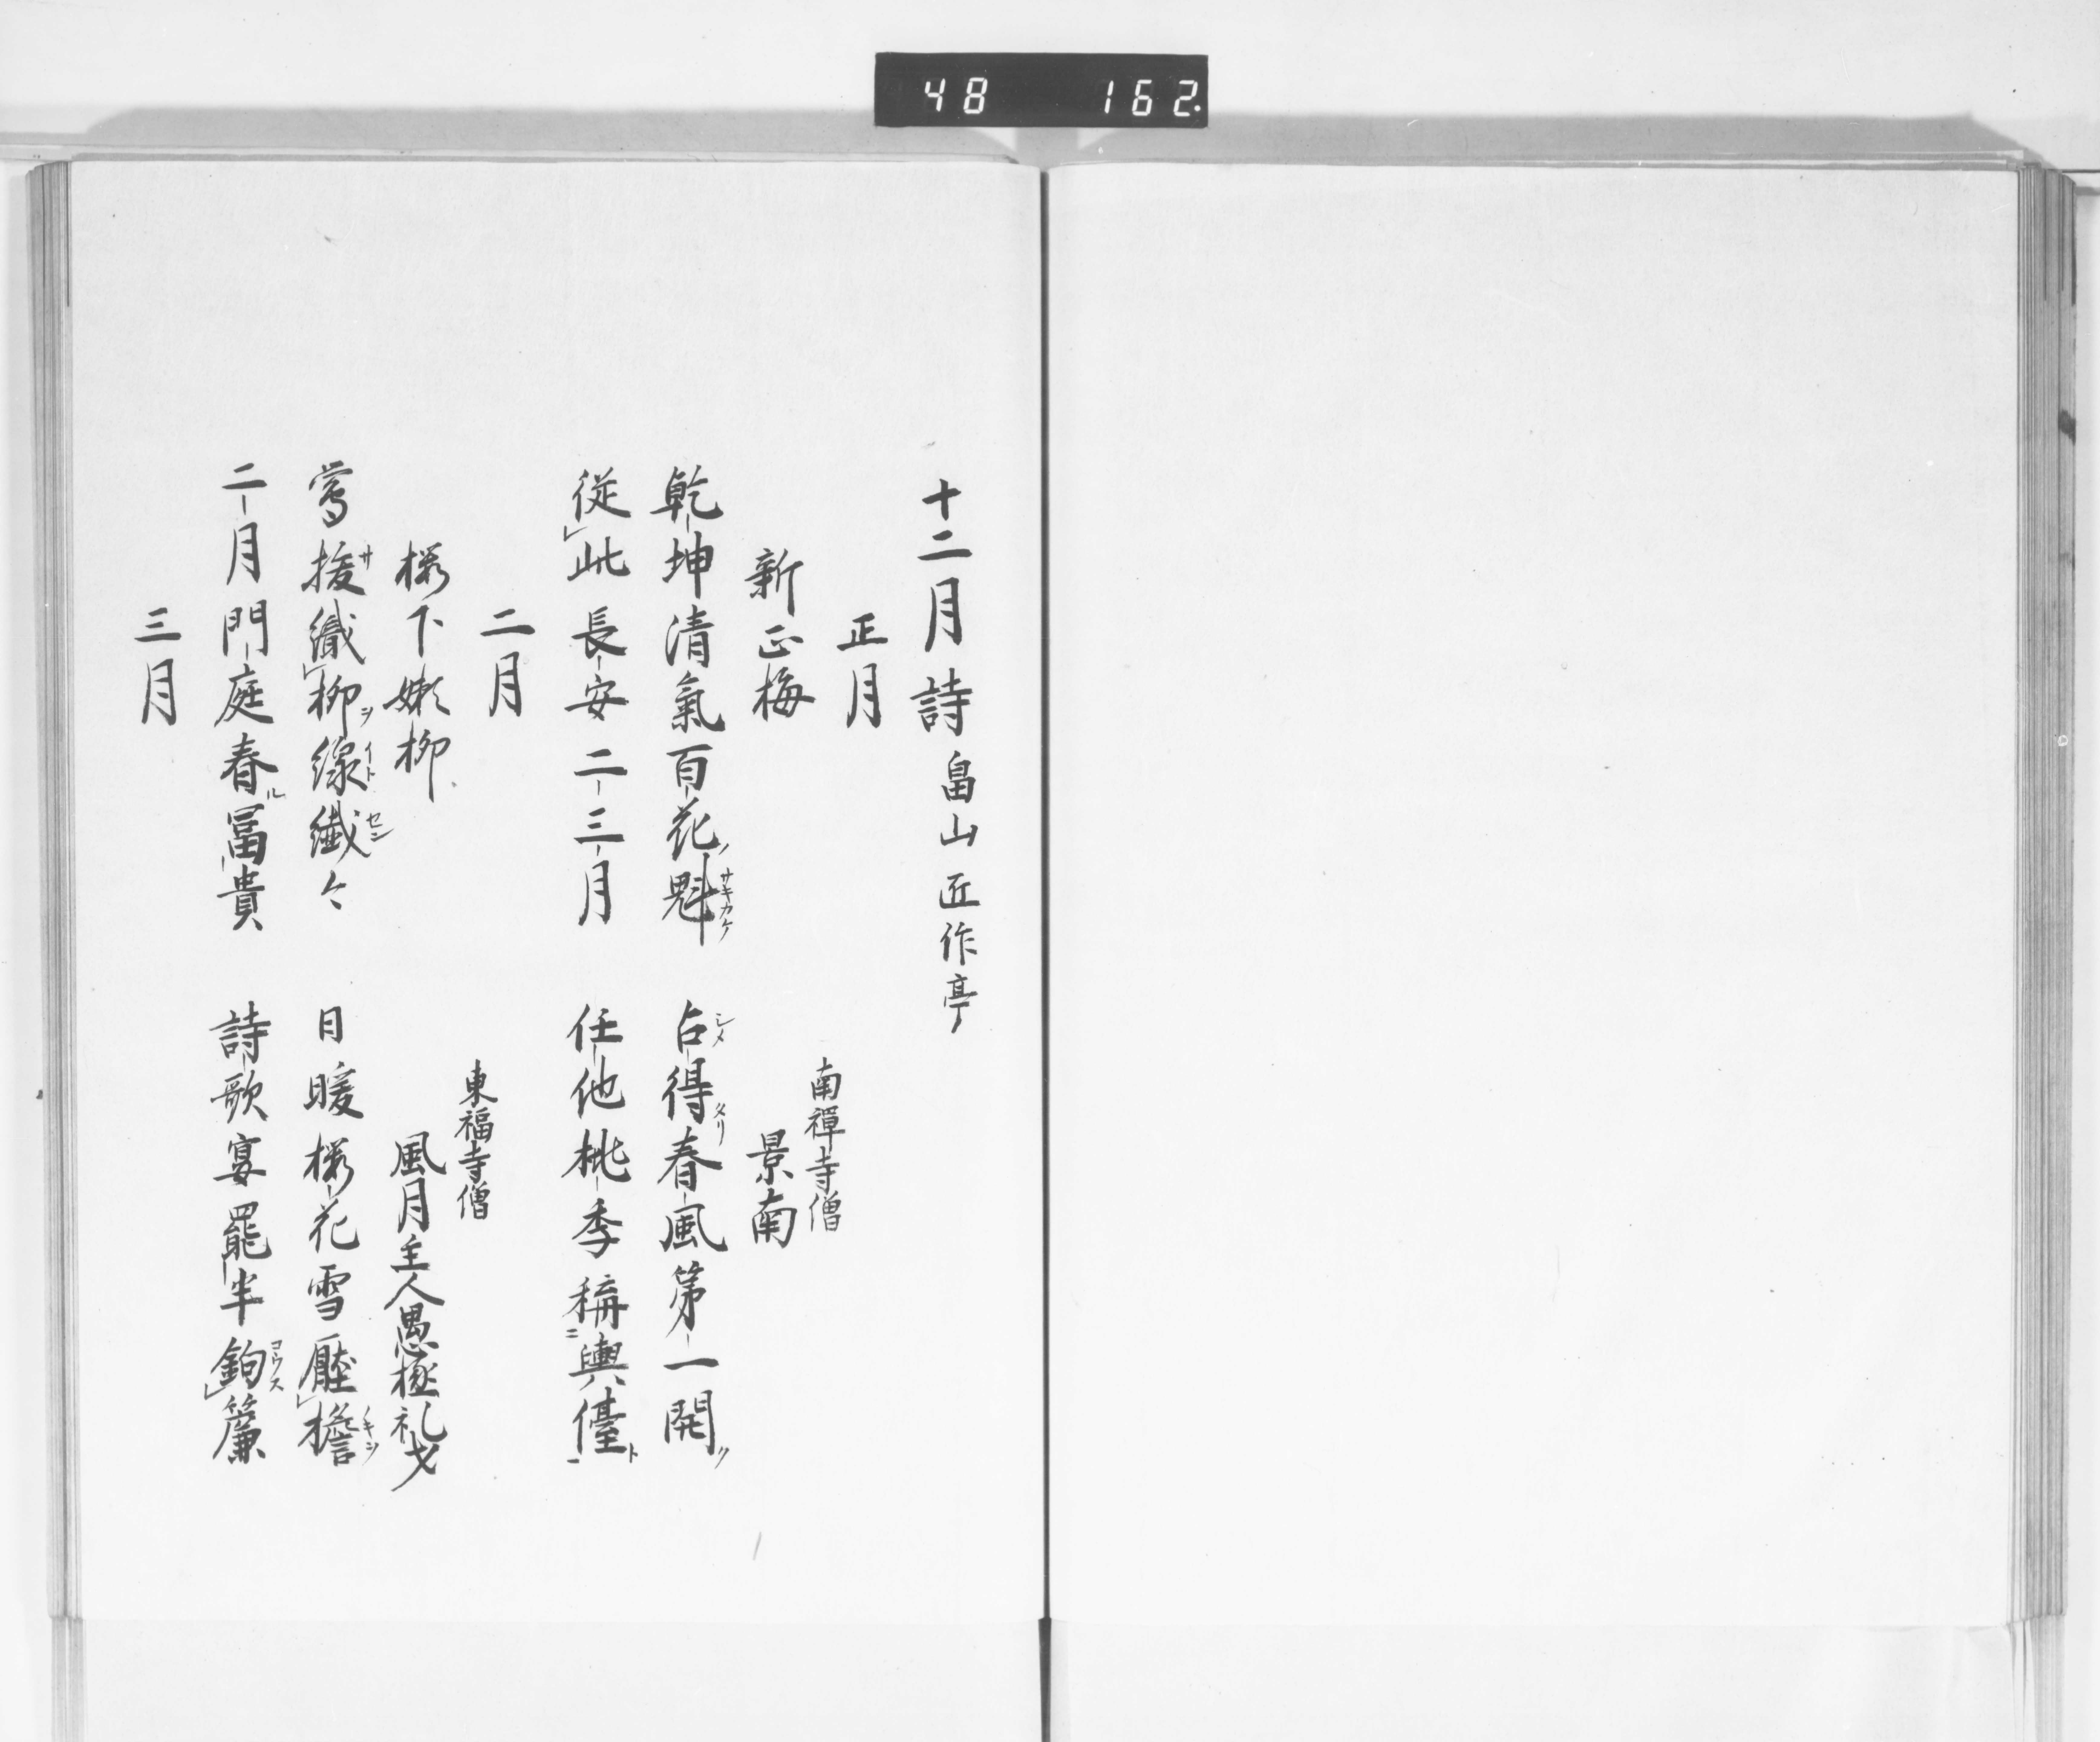 48 162
十二月詩 畠山匠作亭
正月
南禅寺僧
新正梅 景南
乾坤清氣百花魁 占得春風第一開
従此長安二三月 任他桃李稱輿儓
二月
東福寺僧
桜下嫩柳 風月主人愚極礼才
鶯梭織柳線纖々 日暖桜花雪壓檐
二月門庭春冨貴 詩歌宴罷半鉤簾
三月